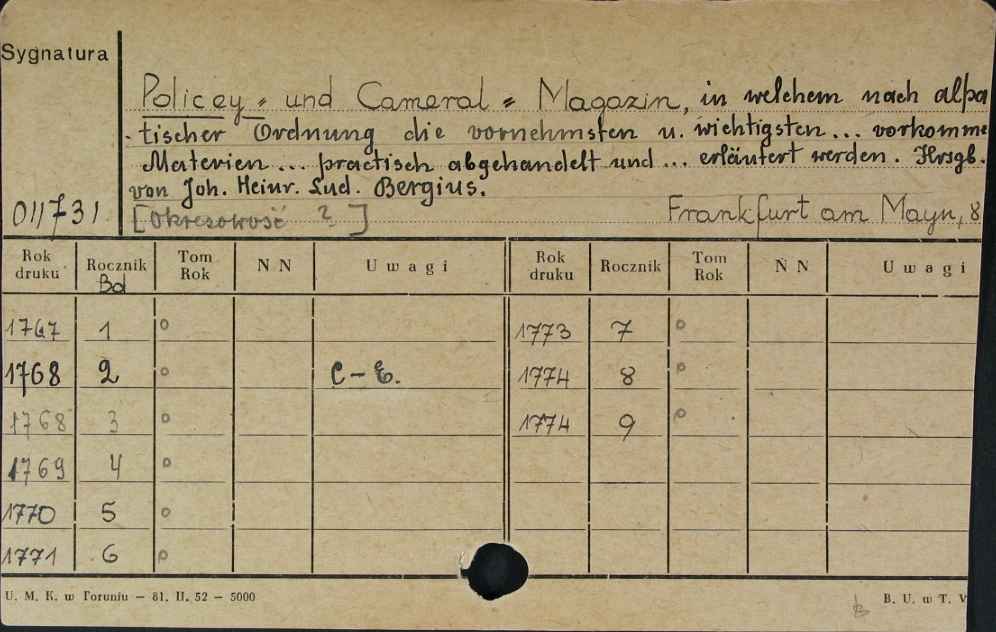 Sygnatura
Policey - und Cameral - Magazin, in welchem nach alpa
- tischer Ordnung die vornehmsten u. wichtigsten... vorkomme
Materien... practisch abgehandelt und... erläutert werden. Hrsgb.
von Joh. Heinr. Lud. Bergius.
011731 [Okresowość ?] Frankfurt am Mayn, 8
Rok druku Rocznik Bd Tom Rok N N Uwagi Rok druku Rocznik Tom Rok N N Uwagi
1767 1 o 1773 7 o
1768 2 o C - E. 1774 8 o
1768 3 o 1774 9 o
1769 4 o
1770 5 o
1771 6 o
U. M. K. w Toruniu — 81. II. 52 — 5000 B. U. w T. V